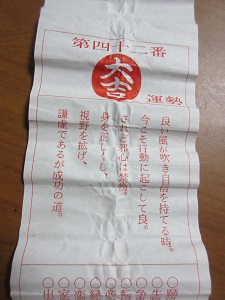 第四十二番
大吉
運勢
良い風が吹き自信を持てる時。
今こそ行動に起こして良。
されど邪心は禁物。
身を正しくし、
視野を拡げ、
謙虚であるが成功の道。